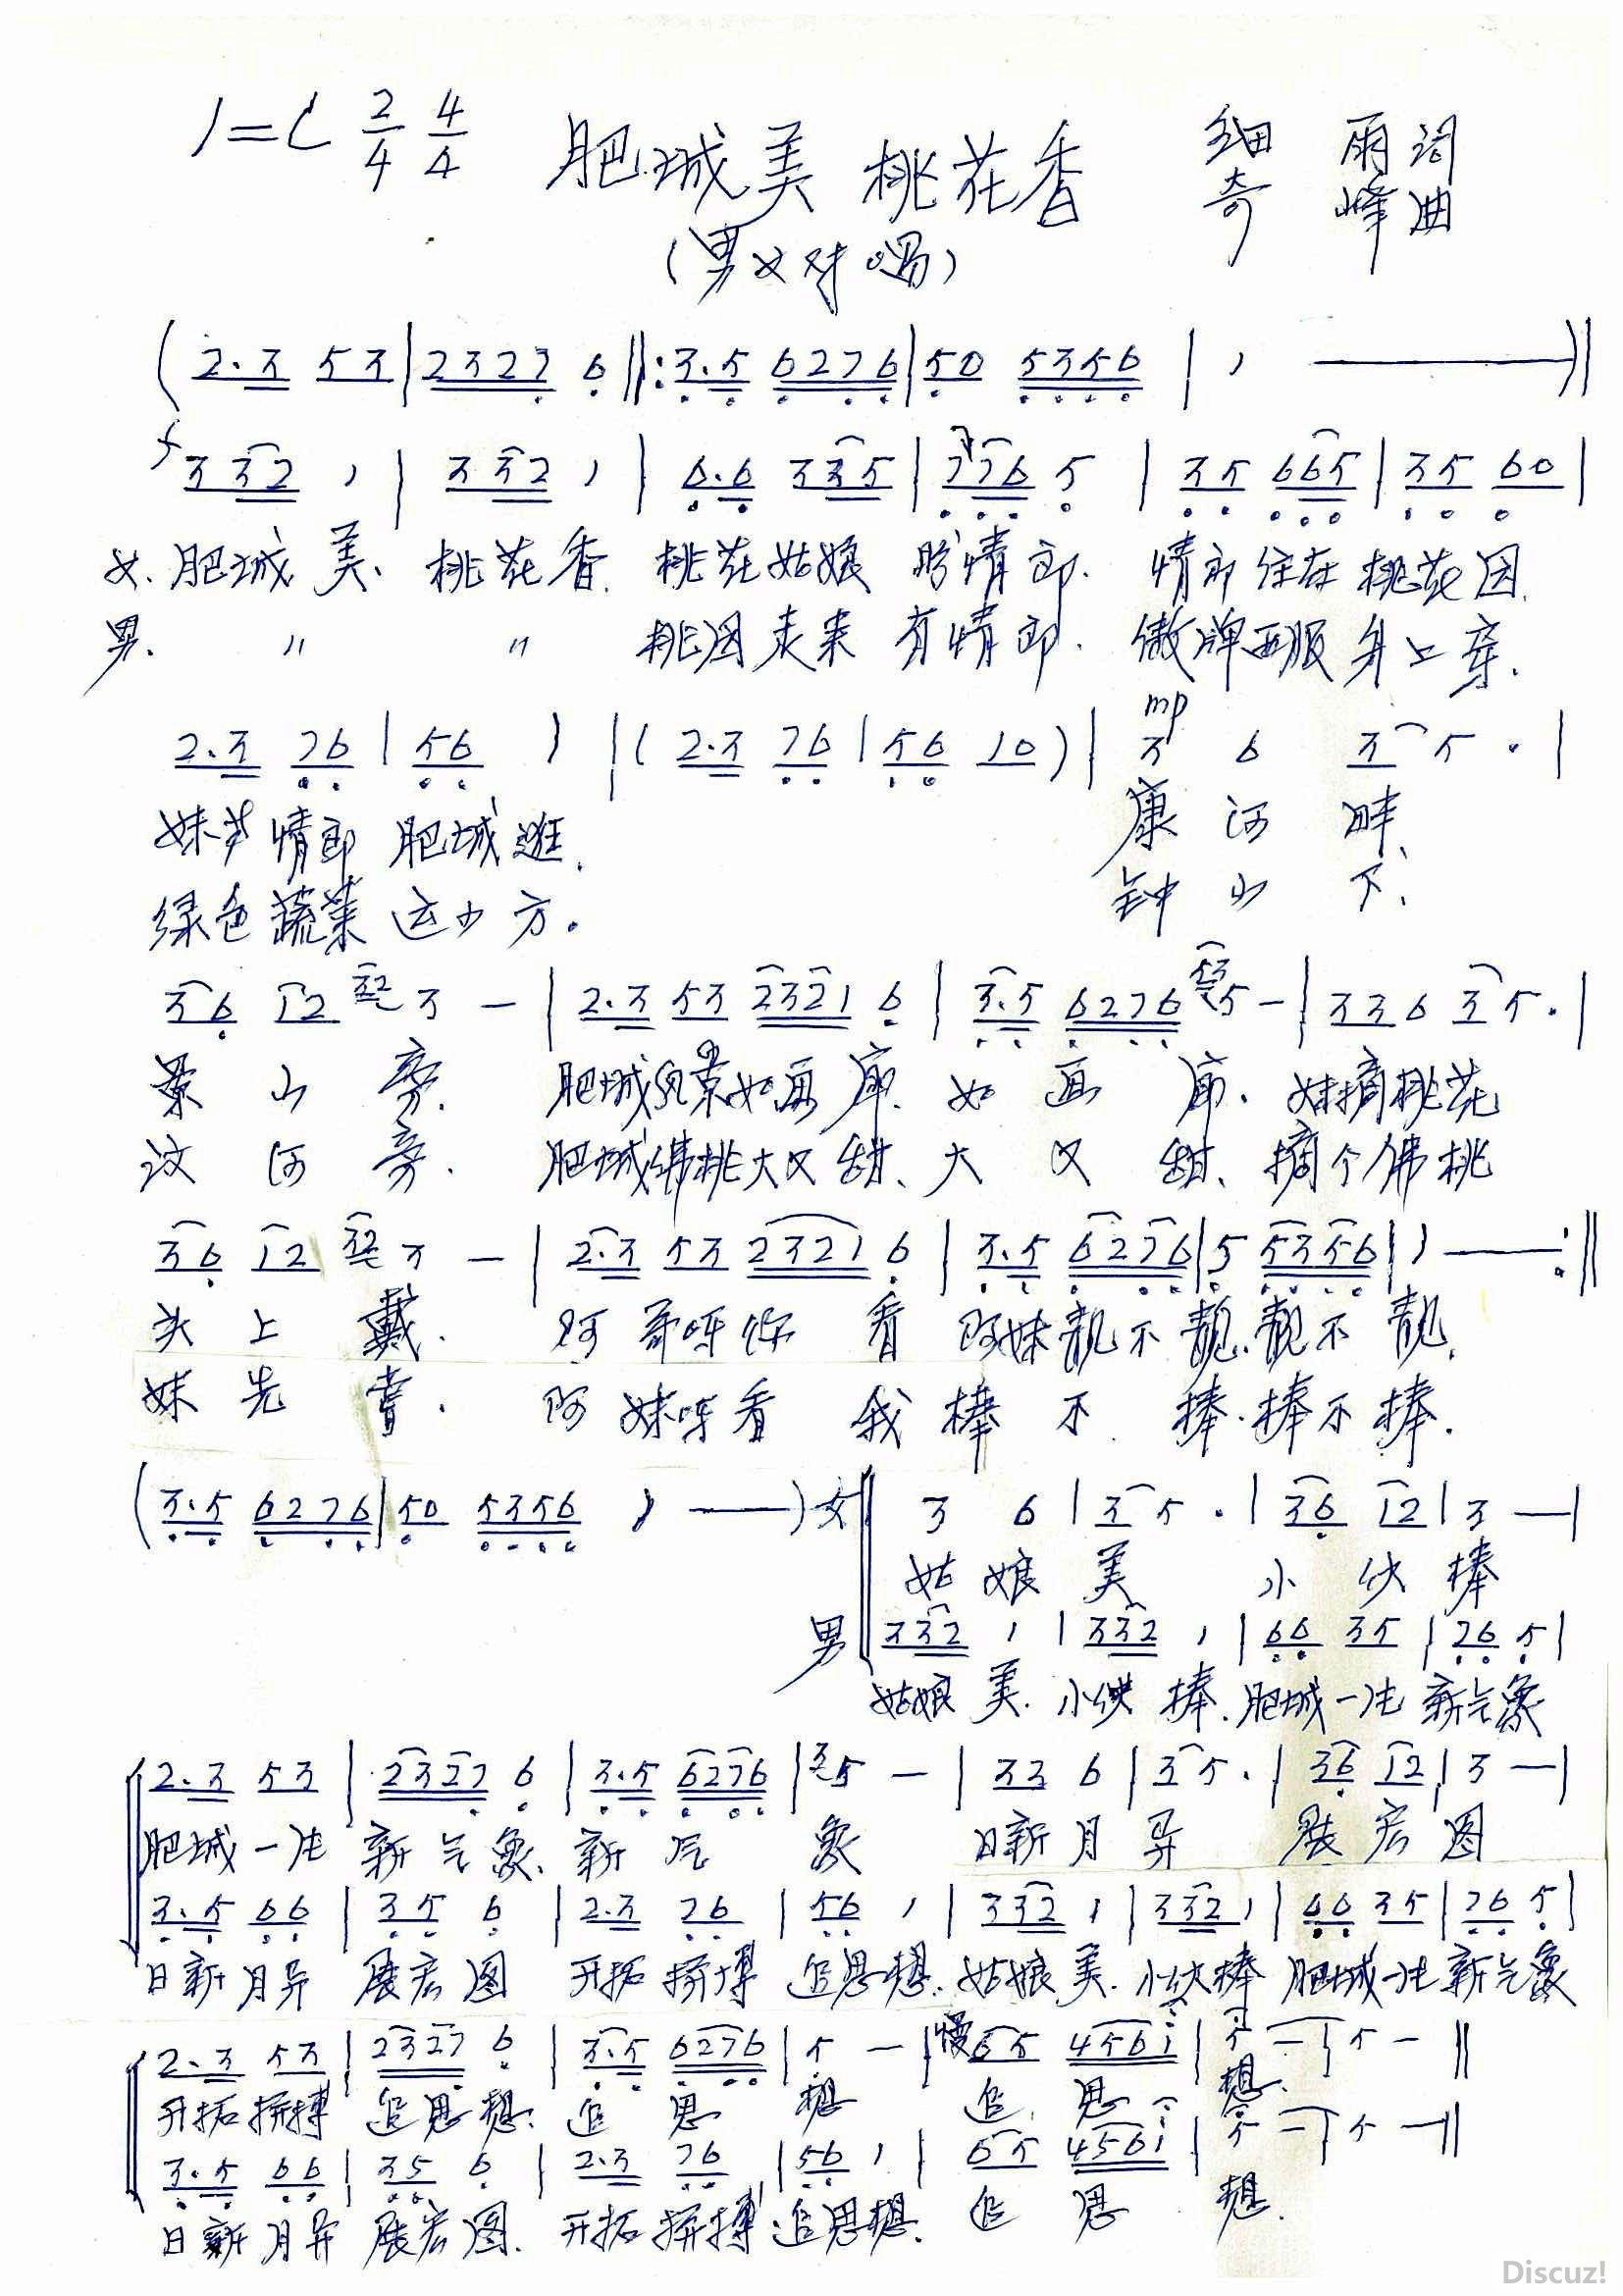 1=C 2/4 4/4 肥城美 桃花香 细雨词
(男女对唱) 奇峰曲
(2.3 53|2327 6‖:3.5 6276|50 5356|1 ——)‖
f 3 32 1|3 32 1|6.6 3 35|7 76 5|35 665|35 60|
女、肥城美、桃花香、桃花姑娘 盼情郎、情郎住在桃花园、
男、 〃 〃 桃园走来有情郎、傲牌西服身上穿、
2.3 76|56 1|(2.3 76|56 10)|mp 3 6 3 5 .|
妹 情郎肥城逛、 康河畔、
绿色蔬菜 方。 钟山下、
36 12 32 3 —|2.3 53 2321 6|3.5 6276 53 5 —|33 6 3 5 .|
景山旁、肥城风景如画廊、如画廊、妹摘桃花
汶河旁、肥城佛桃大又甜、大又甜、摘个佛桃
36 12 32 3 —|2.3 53 2321 6|3.5 6276|5 5356|1 ——:‖
头上戴、阿哥呀你看 阿妹靓不靓、靓不靓、
妹先尝、阿妹呀看我棒不棒、棒不棒、
(3.5 6276|50 5356 1 ——) 女 3 6|3 5 .|36 12|3 —|
姑娘美 小伙棒
男 332 1|332 1|66 35|76 5|
姑娘美、小伙棒、肥城一派新气象
2.3 53|2327 6|3.5 6276|3 5 —|33 6|3 5 .|36 12|3 —|
肥城一派新气象、新气象 日新月异 展宏图
3.5 66|35 6|2.3 76|56 1|332 1|332 1|66 35|76 5|
日新月异 展宏图 开拓拼搏 追思想、姑娘美、小伙棒 肥城一派新气象
2.3 53|2327 6|3.5 6276|5 —|慢 65 4561|5 —|5 —‖
开拓拼搏 追思想、追思想 追思想、
3.5 66|35 6|2.3 76|56 1|65 4561|5 —|5 —‖
日新月异 展宏图、开拓拼搏 追思想、追思想、
Discuz!